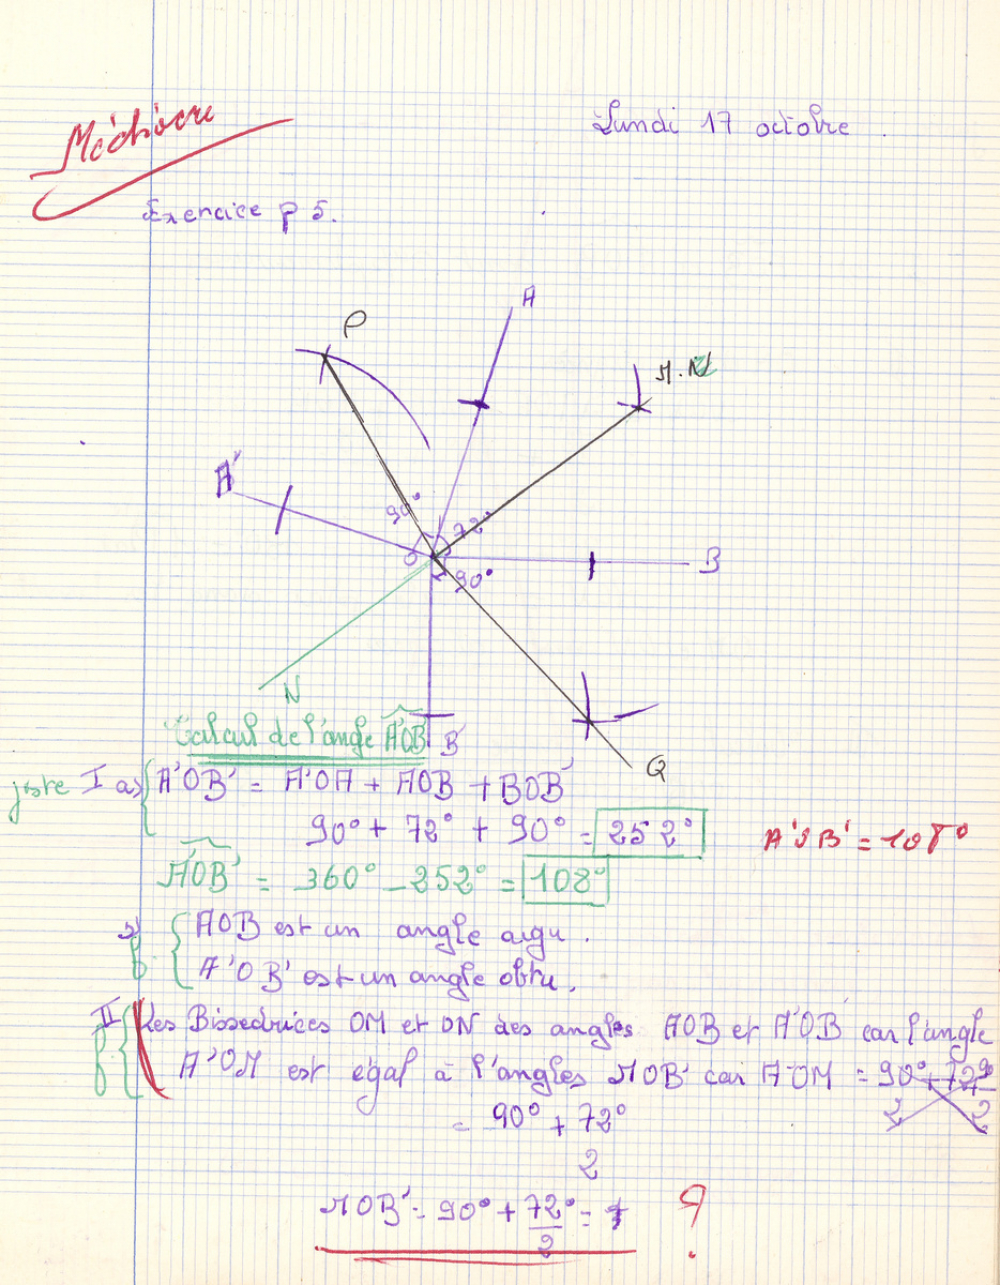 Médiocre
Lundi 17 octobre.
Exercice p 5.
A
P
M.N
A'
90°
72°
O
B
90°
N
B'
Q
Calcul de l'angle A'OB'
juste I a) A'OB' = A'OA + AOB + BOB'
90° + 72° + 90° = 252° A'OB' = 108°
A'OB' = 360° - 252° = 108°
b AOB est un angle aigu.
A'OB' est un angle obtu.
II Les Bissedrices OM et ON des angles AOB et A'OB' car l'angle
A'OM est égal à l'angles MOB' car A'OM = 90° + 72°
2 2
= 90° + 72°
2
MOB' = 90° + 72° =
2
?